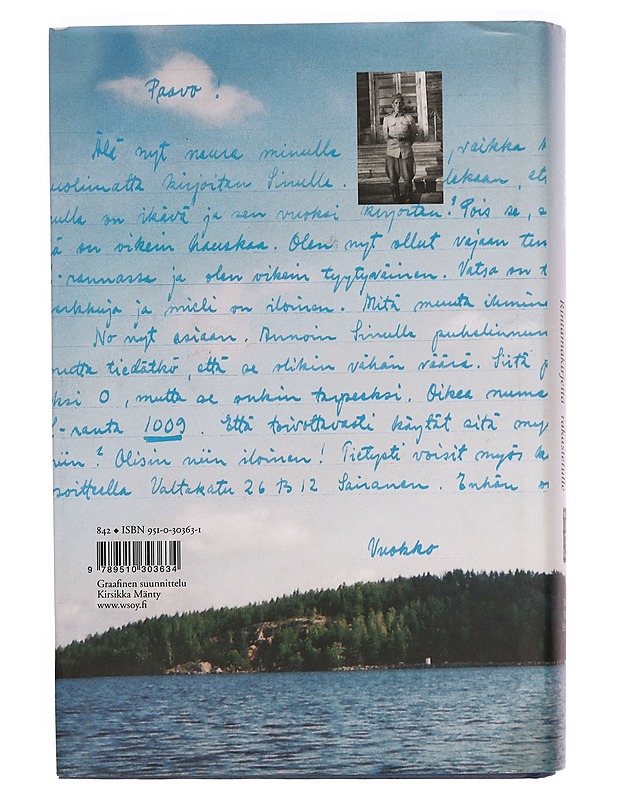 Paavo!
Älä nyt naura minulle , vaikka
uolimatta kirjoitan Sinulle. lekaan, et
ulla on ikävä ja sen vuoksi kirjoitan? Pois se,
ä on oikein hauskaa. Olen nyt ollut vajaan
-rannassa ja olen oikein tyytyväinen. Vatsa on t
arkkuja ja mieli on iloinen. Mitä muuta ihmin
No nyt asiaan. Annoin Sinulle puhelinnum
mutta tiedätkö, että se olikin vähän väärä. Siitä p
ksi 0, mutta se onkin tarpeeksi. Oikea nume
-ranta 1009. Että toivottavasti käytät sitä my
niin? Olisin niin iloinen! Tietysti voisit myös k
soitteella Valtakatu 26 B 12 Sairanen. Enhän
Vuokko
842 ◆ ISBN 951-0-30363-1
9 789510 303634
Graafinen suunnittelu
Kirsikka Mänty
www.wsoy.fi
Rintamakirjeitä rakastetulle